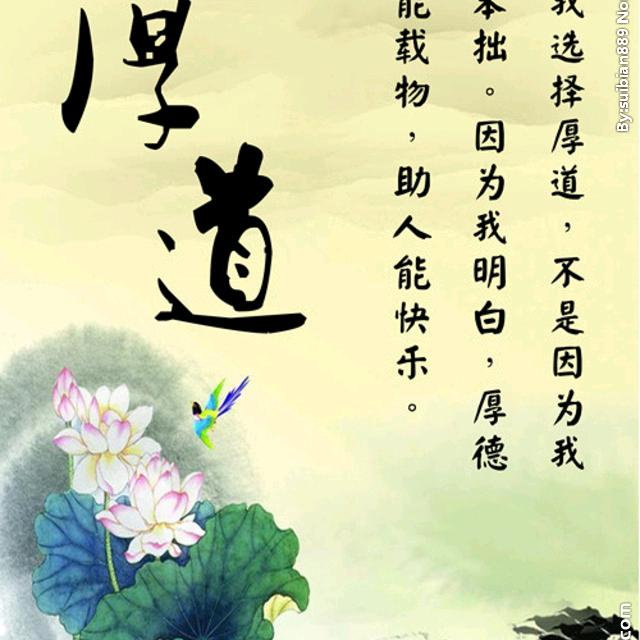 厚道
我选择厚道，不是因为我
笨拙。因为我明白，厚德
能载物，助人能快乐。
By:suibian889 No
.com